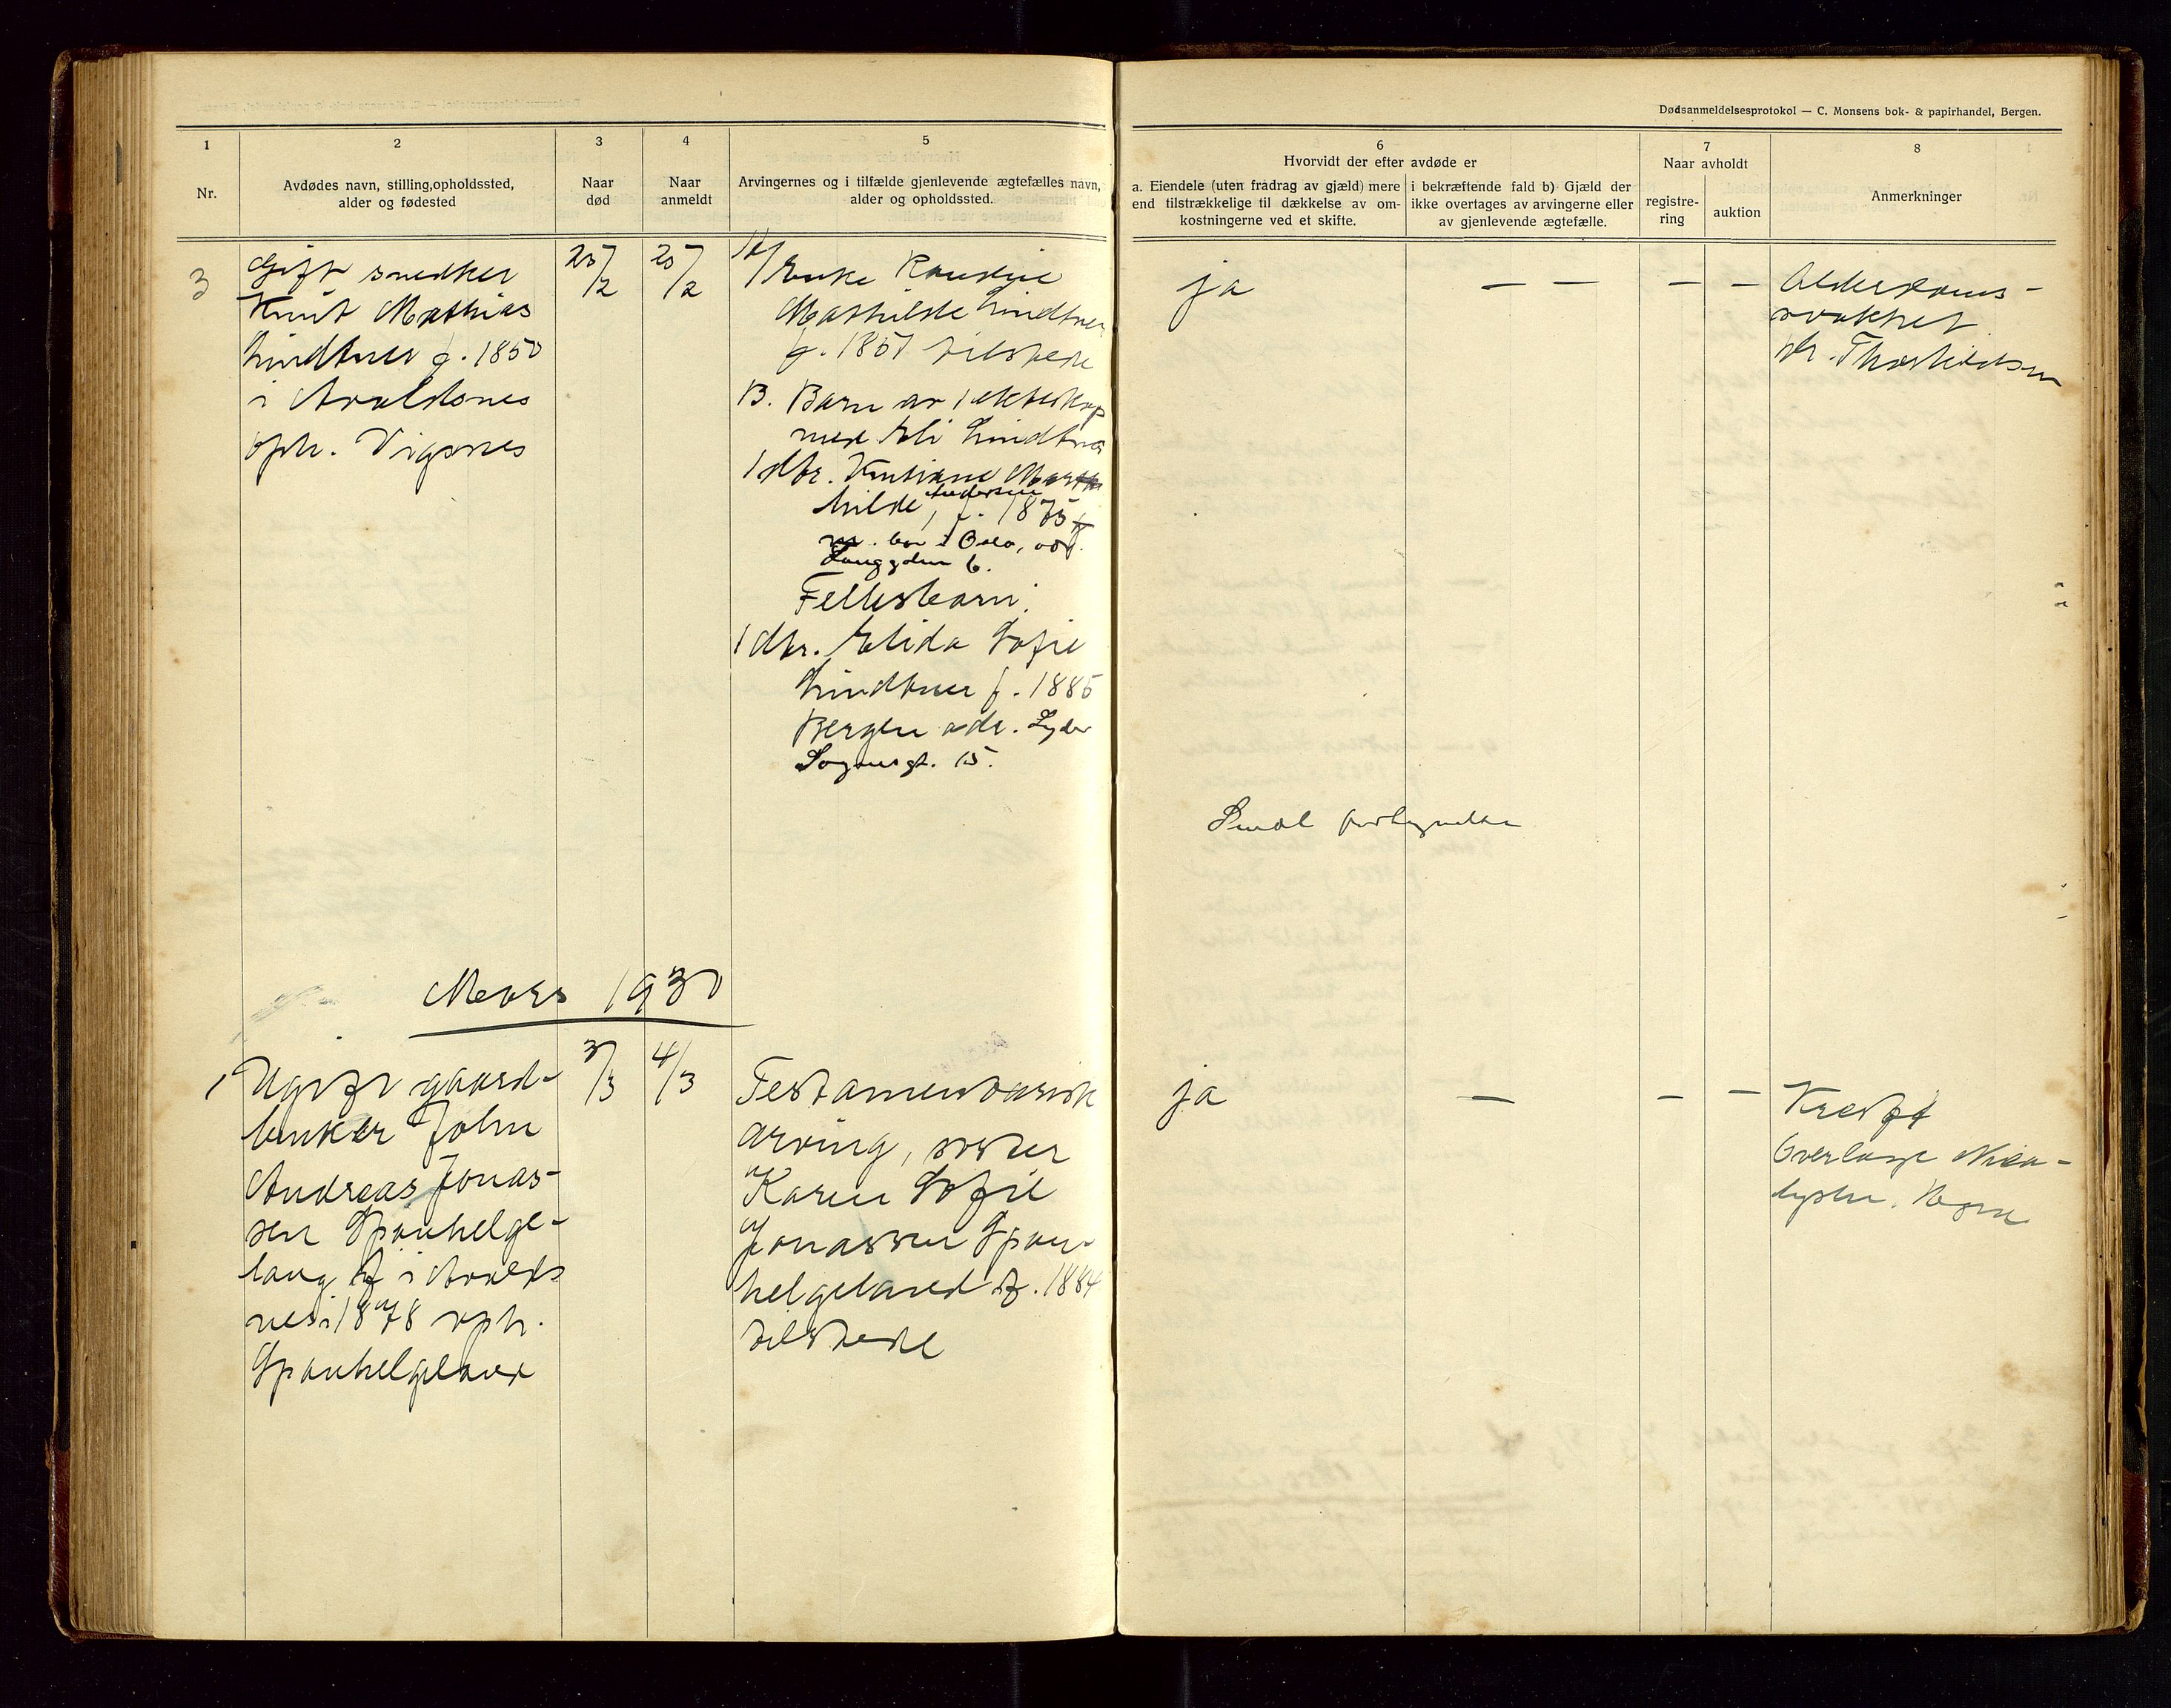 Dødsanmeldelsesprotokol — C. Monsens bok- & papirhandel, Bergen.
1
Nr.
2
Avdødes navn, stilling, opholdssted,
alder og fødested
3
Naar
død
4
Naar
anmeldt
5
Arvingernes og i tilfælde gjenlevende ægtefælles navn,
alder og opholdssted.
6
Hvorvidt der efter avdøde er
a. Eiendele (uten fradrag av gjæld) mere
end tilstrækkelige til dækkelse av om-
kostningerne ved et skifte.
i bekræftende fald b) Gjæld der
ikke overtages av arvingerne eller
av gjenlevende ægtefælle.
7
Naar avholdt
registre-
ring
auktion
8
Anmerkninger
3
Gift snedker
Knut Mathias
Lindtner f. 1850
i Avaldsnes
oph. Vigsnes
25/2
25/2
A/ Enke
Mathilde Lindtner
f. 1851 tilstede
B. Barn av 1 ekteskap
med Eli Lindtner
1 dtr.
hilde, Andersen f. 1875
bor i Oslo, adr.
6.
Fellesbarn.
1 dtr. Elida Sofie
Lindtner f. 1885
Bergen adr. Lyder
Sagensgt. 15.
ja
— —
—
—
Alderdoms-
svakhet
dr.
Mars 1930
1
Ugift gaard-
bruker John
Andreas Jonas-
sen Spanhelge-
land f. i Avalds
nes i 1878 oph.
Spanhelgeland
3/3
4/3
Testamentarisk
arving, søster
Karen Sofie
Jonassen Span-
helgeland f. 1884
tilstede
ja
—
—
—
Kreft
Overlæge